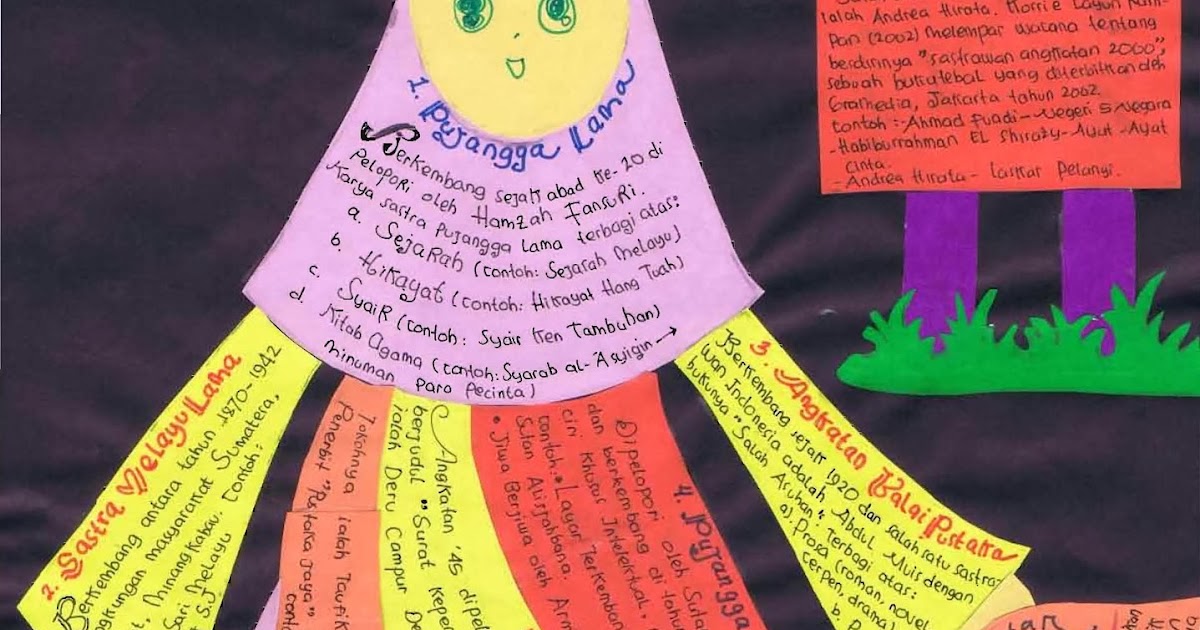 1. Pujangga Lama
Berkembang sejak abad ke-20 di
pelopori oleh Hamzah Fansuri.
Karya sastra pujangga lama terbagi atas:
a. Sejarah (contoh: Sejarah Melayu)
b. Hikayat (contoh: Hikayat Hang Tuah)
c. Syair (contoh: Syair Ken Tambuhan)
d. Kitab Agama (contoh: Syarab al-Asyigin →
minuman para pecinta)
2. Sastra Melayu Lama
Berkembang antara tahun 1870-1942
lingkungan masyarakat Sumatera,
Minangkabau. Contoh:
Sari Melayu
S.J
3. Angkatan Balai Pustaka
Berkembang sejak 1920 dan salah satu sastra
wan Indonesia adalah Abdul Muis dengan
bukunya "Salah Asuhan". Terbagi atas:
a). Prosa (roman, novel
cerpen, drama)
b.
4. Pujangga
Dipelopori oleh
dan berkembang di
ciri khusus Intelektual,
contoh: • Layar Terkemban
Sutan Alisjahbana.
• Jiwa Berjiwa oleh
Angkatan '45
berjudul "Surat
ialah Deru Campur
Tokohnya ialah Taufik
Penerbit "Pustaka Jaya"
ialah Andrea Hirata. Korrie Layun Ram-
pan (2002) melempar wacana tentang
berdirinya "sastrawan angkatan 2000",
sebuah buku tebal yang diterbitkan oleh
Gramedia, Jakarta tahun 2002.
contoh:-Ahmad Fuadi-Negeri 5 Negara
-Habiburrahman EL Shirazy-Ayat-Ayat
cinta.
-Andrea Hirata- Laskar Pelangi.